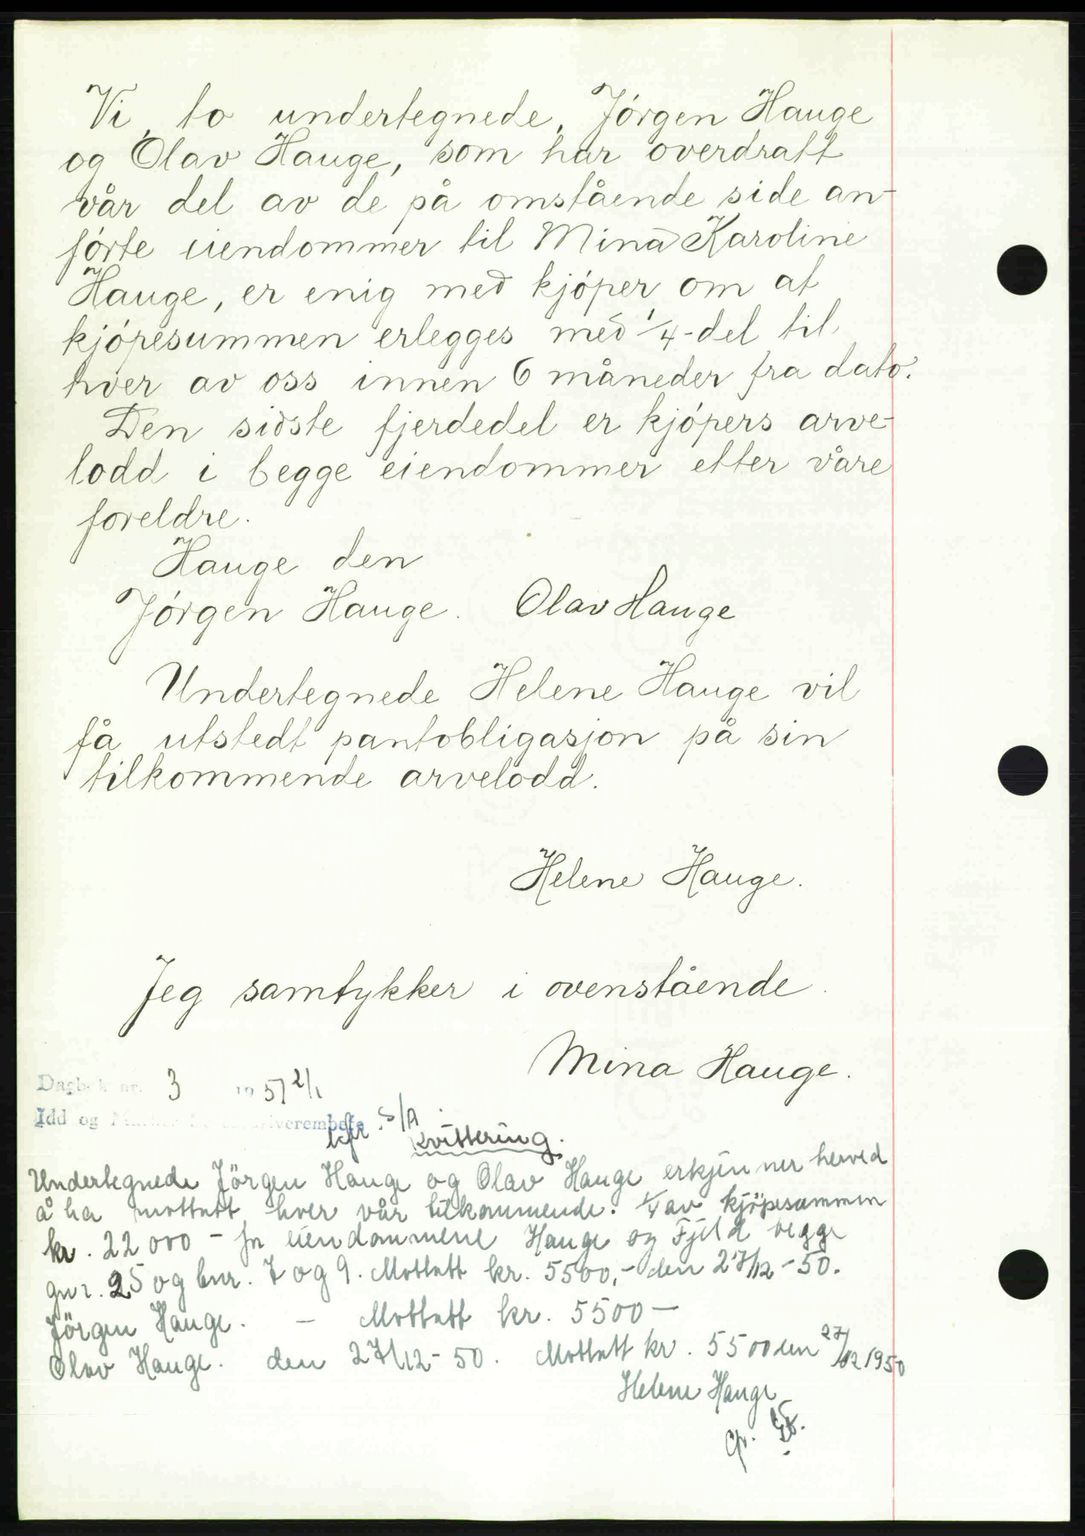 Vi, to undertegnede, Jørgen Hauge
og Olav Hauge, som har overdratt
vår del av de på omstående side an-
førte eiendommer til Mina Karoline
Hauge, er enig med kjøper om at
kjøpesummen erlegges med 1/4-del til
hver av oss innen 6 måneder fra dato.
Den sidste fjerdedel er kjøpers arve-
lodd i begge eiendommer etter våre
foreldre.
Hauge den
Jørgen Hauge. Olav Hauge
Undertegnede Helene Hauge vil
få utstedt pantobligasjon på sin
tilkommende arvelodd.
Helene Hauge.
Jeg samtykker i ovenstående.
Mina Hauge.
Dagbok nr. 3 1951 2/1
Idd og
Kvittering.
Undertegnede Jörgen Hauge og Olav Hauge erkjenner herved
å ha mottatt hver vår tilkommende 1/4 av kjöpesummen
kr. 22 000 - for eiendommene Hauge og Fjeld begge
gnr. 25 og bnr. 7 og 9. Mottatt kr. 5500,- den 27/12-50.
Jörgen Hauge. - Mottatt kr. 5500 -
Olav Hauge. den 27/12-50. Mottatt kr. 5500 den 27/12 1950
Helene Hauge